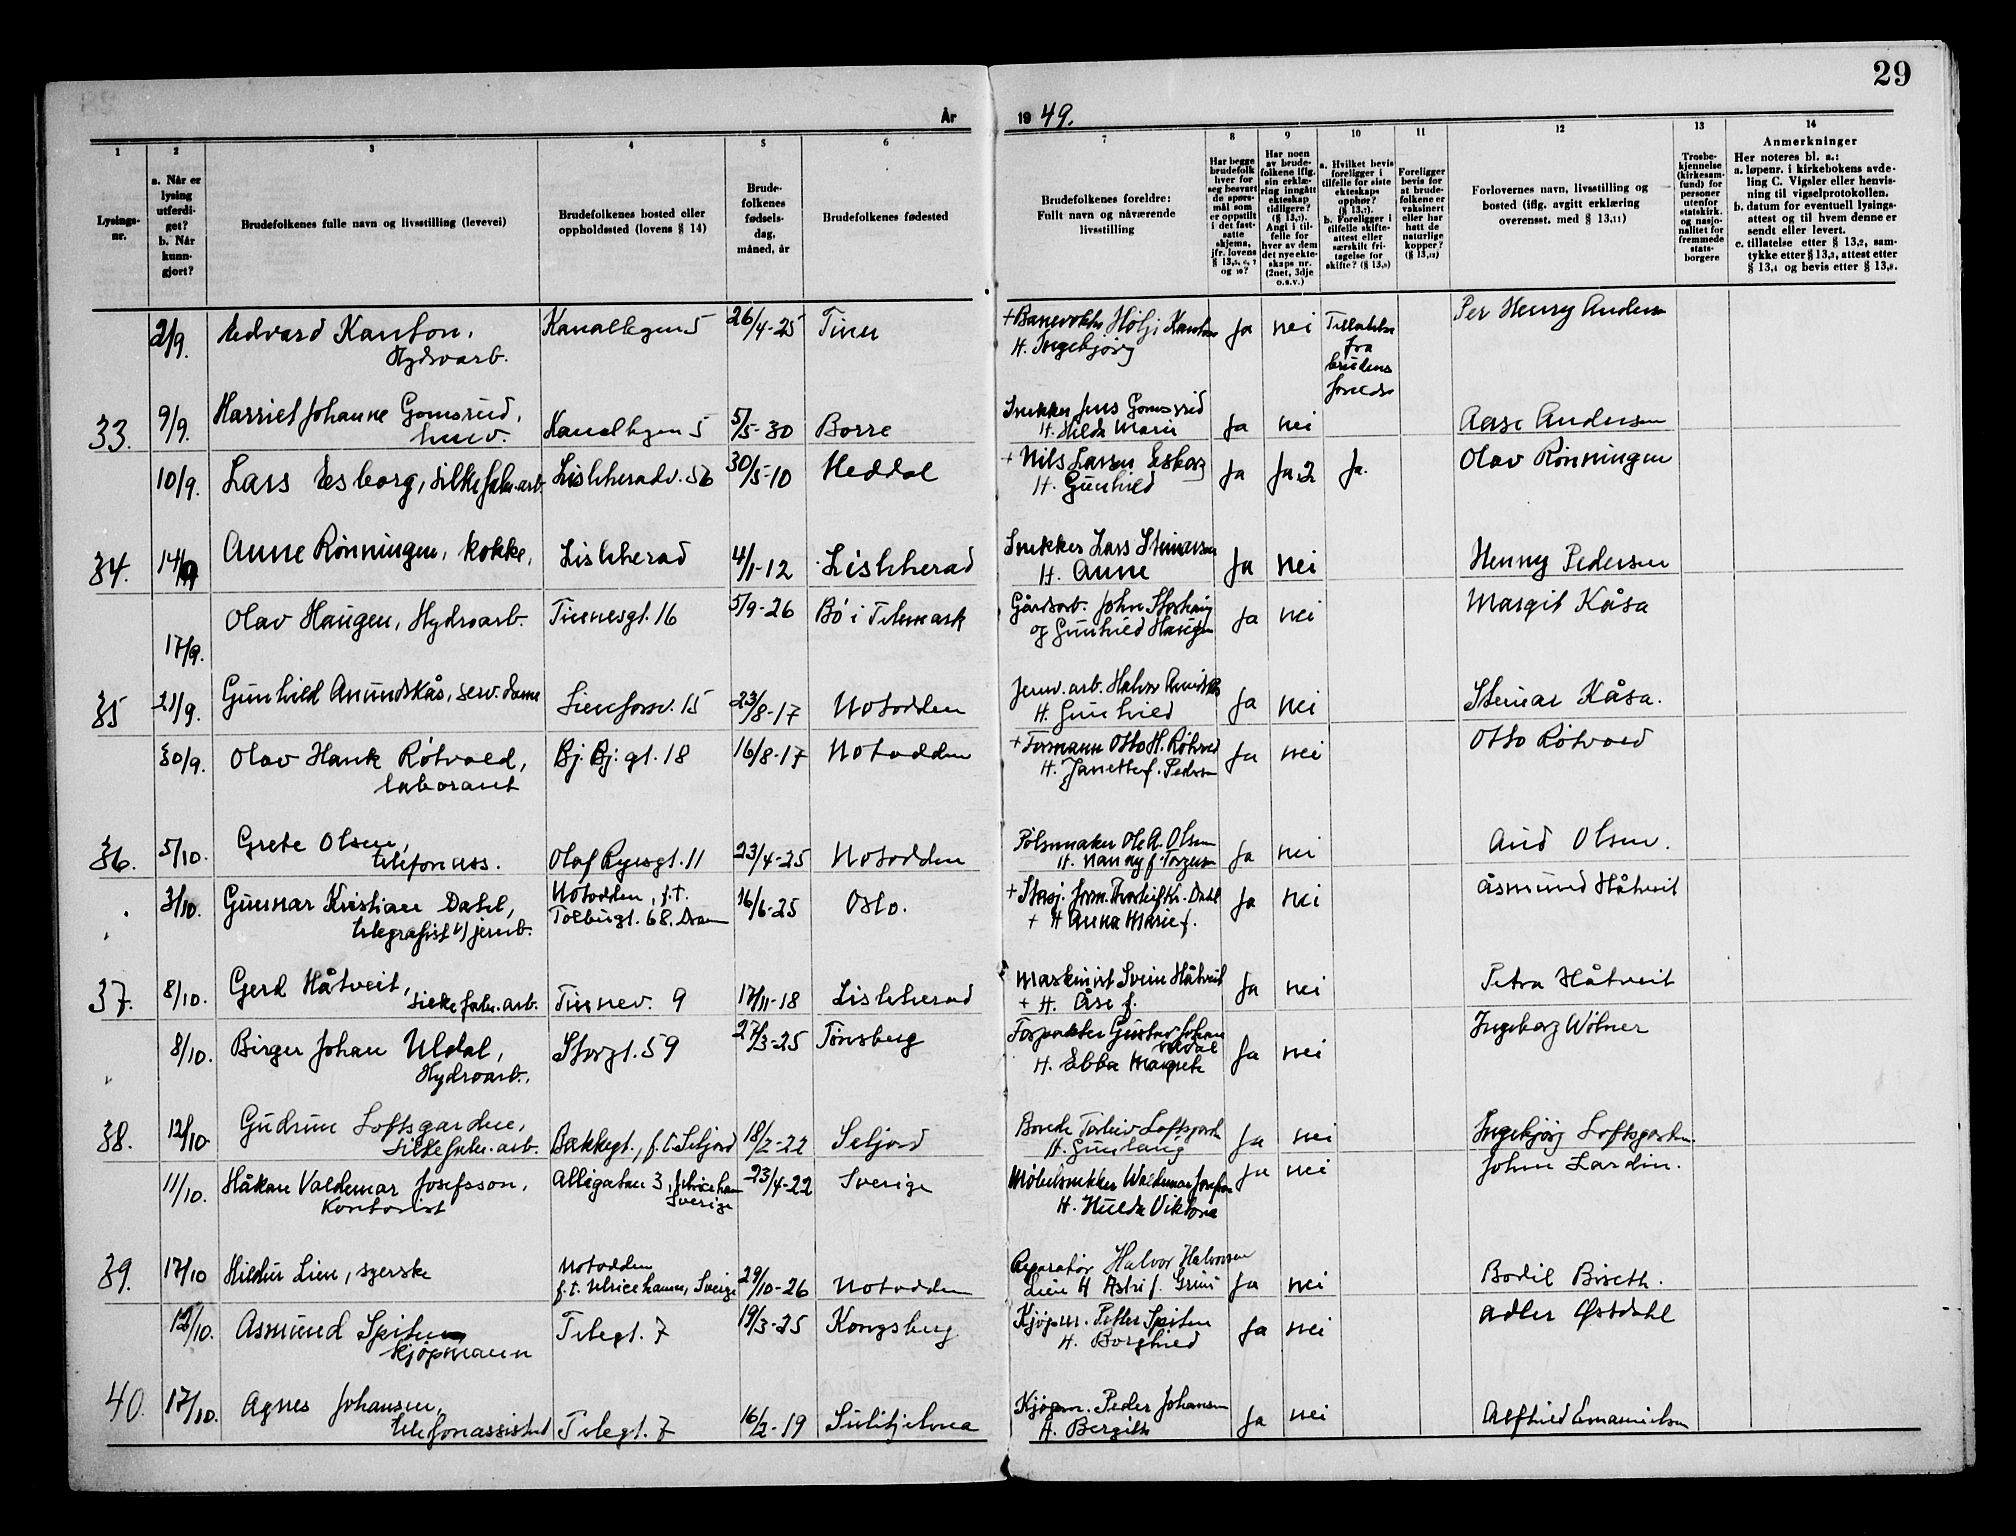 29
År
19 49.
1
2
3
4
5
6
7
8
9
10
11
12
13
14
Lysings-
nr.
a. Når er
lysing
utferdi-
get?
b. Når
kunn-
gjort?
Brudefolkenes fulle navn og livsstilling (levevei)
Brudefolkenes bosted eller
oppholdssted (lovens § 14)
Brude-
folkenes
fødsels-
dag,
måned, år
Brudefolkenes fødested
Brudefolkenes foreldre:
Fullt navn og nåværende
livsstilling
Har begge
brudefolk
hver for
seg besvart
de spørs-
mål som
er oppstilt
i det fast-
satte
skjema,
jfr. lovens
og 10?
Har noen
av brude-
folkene iflg.
sin erklæ-
ring inngått
ekteskap
tidligere?
Angi i til-
felle for
hver av dem
det nye ekte-
skaps nr.
(2net, 3dje
o.s.v.)
a. Hvilket bevis
foreligger i
tilfelle for siste
ekteskaps
opphør?
b. Foreligger i
tilfelle skifte-
attest eller
særskilt fri-
tagelse for
skifte?
Foreligger
bevis for
at brude-
folkene er
vaksinert
eller har
hatt de
naturlige
kopper?
Forlovernes navn, livsstilling og
bosted (iflg. avgitt erklæring
overensst. med § 13,11)
Trosbe-
kjennelse
(kirkesam-
fund) for
personer
utenfor
statskirk.
og nasjo-
nalitet for
fremmede
stats-
borgere
Anmerkninger
Her noteres bl. a.:
a. løpenr. i kirkebokens avde-
ling C. Vigsler eller henvis-
ning til vigselprotokollen.
b. datum for eventuell lysings-
attest og til hvem denne er
sendt eller levert.
c. tillatelse etter § 13,2, sam-
tykke etter § 13,3, attest etter
§ 13,4 og bevis etter § 13,8.
2/9. Edvard Kanton, Kanalvegen 5 26/4-25 Tinn + Høljs Ja nei Tillatelse Per Henry Andersen
Hydroarb. H. Ingebjørg fra
brudens
foreldre
33. 9/9. Harriet Johanne Gomsrud, Kanalvegen 5 5/5-30 Borre Snekker Jens Gomsrud Ja nei Aase Andersen
husv. H. Hilda Marie
10/9. Lars Esborg, silkefabr.arb. Lislheradv. 56 30/5-10 Heddal + Nils Larsen Esborg Ja Ja.2 Ja. Olav Rønningen
H. Gunhild
34. 14/9 Anne Rønningen, kokke, Lislherad 4/1-12 Lislherad Snekker Lars Steinarsen Ja nei Henny Pedersen
H. Anne
17/9. Olav Haugen, Hydroarb. Tinnesgt. 16 5/9-26 Bø i Telemark Gårdsarb. John Ja nei Margit Kåsa
og Gunhild Haugen
35 21/9. Gunhild Anundskås, serv.dame 15 23/8-17 Notodden Jernv.arb. Halvor Anundskås Ja nei Steinar Kåsa.
H. Gunhild
30/9. Olav Hauk Røtvold, Bj. Bj. gt. 18 16/8-17 Notodden + Formann Otto H. Røtvold Ja nei Otto Røtvold
laborant H. Janette f. Pedersen
36. 5/10. Grete Olsen, Olaf Ryesgt. 11 23/4-25 Notodden Pølsemaker Ole A. Olsen Ja nei Aud Olsen.
telefonass. H. Nanny f. Torgersen
3/10. Gunnar Kristian Dahl, Notodden, f.t. 16/6-25 Oslo. + Stasj. form. Thorleif Kr. Dahl Ja nei Åsmund Håtveit
telegrafist v/ jernb. Tolbugt. 68. Dram + H Anna Marie f.
37. 8/10. Gerd Håtveit, Tinnev. 9 17/11-18 Lislherad Maskinist Svein Håtveit Ja nei Petra Håtveit
silkefabr.arb. + H. Åse f.
8/10. Birger Johan Uldal, Storgt. 59 27/3-25 Tønsberg Forpakter Gustav Johan Ja nei Ingeborg Wølner
Hydroarb. Uldal
H. Ebba Margrete
38. 12/10 Gudrun Loftsgarden, Bakkegt., f.t. Seljord 18/2-22 Seljord Bonde Torleiv Loftsgarden Ja nei Ingebjørg Loftsgarden.
silkefabr.arb. H. Gunlaug
11/10. Håkan Valdemar Josefsson, Alligatan 3, Ulricehamn 23/4-22 Sverige Møbelsnekker Waldemar Josefsson Ja nei John Lardin.
Kontorist Sverige H. Hulda Viktoria
39. 17/10 Hildur Lien, syerske Notodden 29/10-26 Notodden Aparatør Halvor Halvorsen Ja nei Bodil Biseth.
f.t. Ulricehamn, Sverige Lien H Astri f. Grini
12/10. Asmund Spiten Telegt. 7 19/3-25 Kongsberg Kjøpm. Petter Spiten Ja nei Adler Østdahl
kjøpmann H. Borghild
40. 17/10. Agnes Johansen, Telegt. 7 16/2-19 Sulitjelma Kjøpm. Peder Johansen Ja nei Alfhild Emanuelsen
telefonassistent H. Bergitte